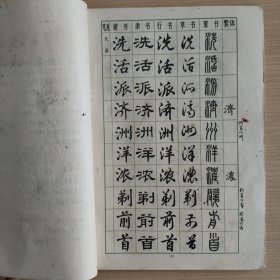 笔画 楷书 隶书 行书 草书 篆书 繁体
九画
洗 洗 洗 洗 洗
活 活 活 活 活
派 派 派 派 派
济 济 济 济 濟 濟
洲 洲 洲 洲 州
洋 洋 洋 洋 洋
浓 浓 浓 浓 濃 濃
剃 剃 剃 剃
前 前 前 前 前
首 首 首 首 首